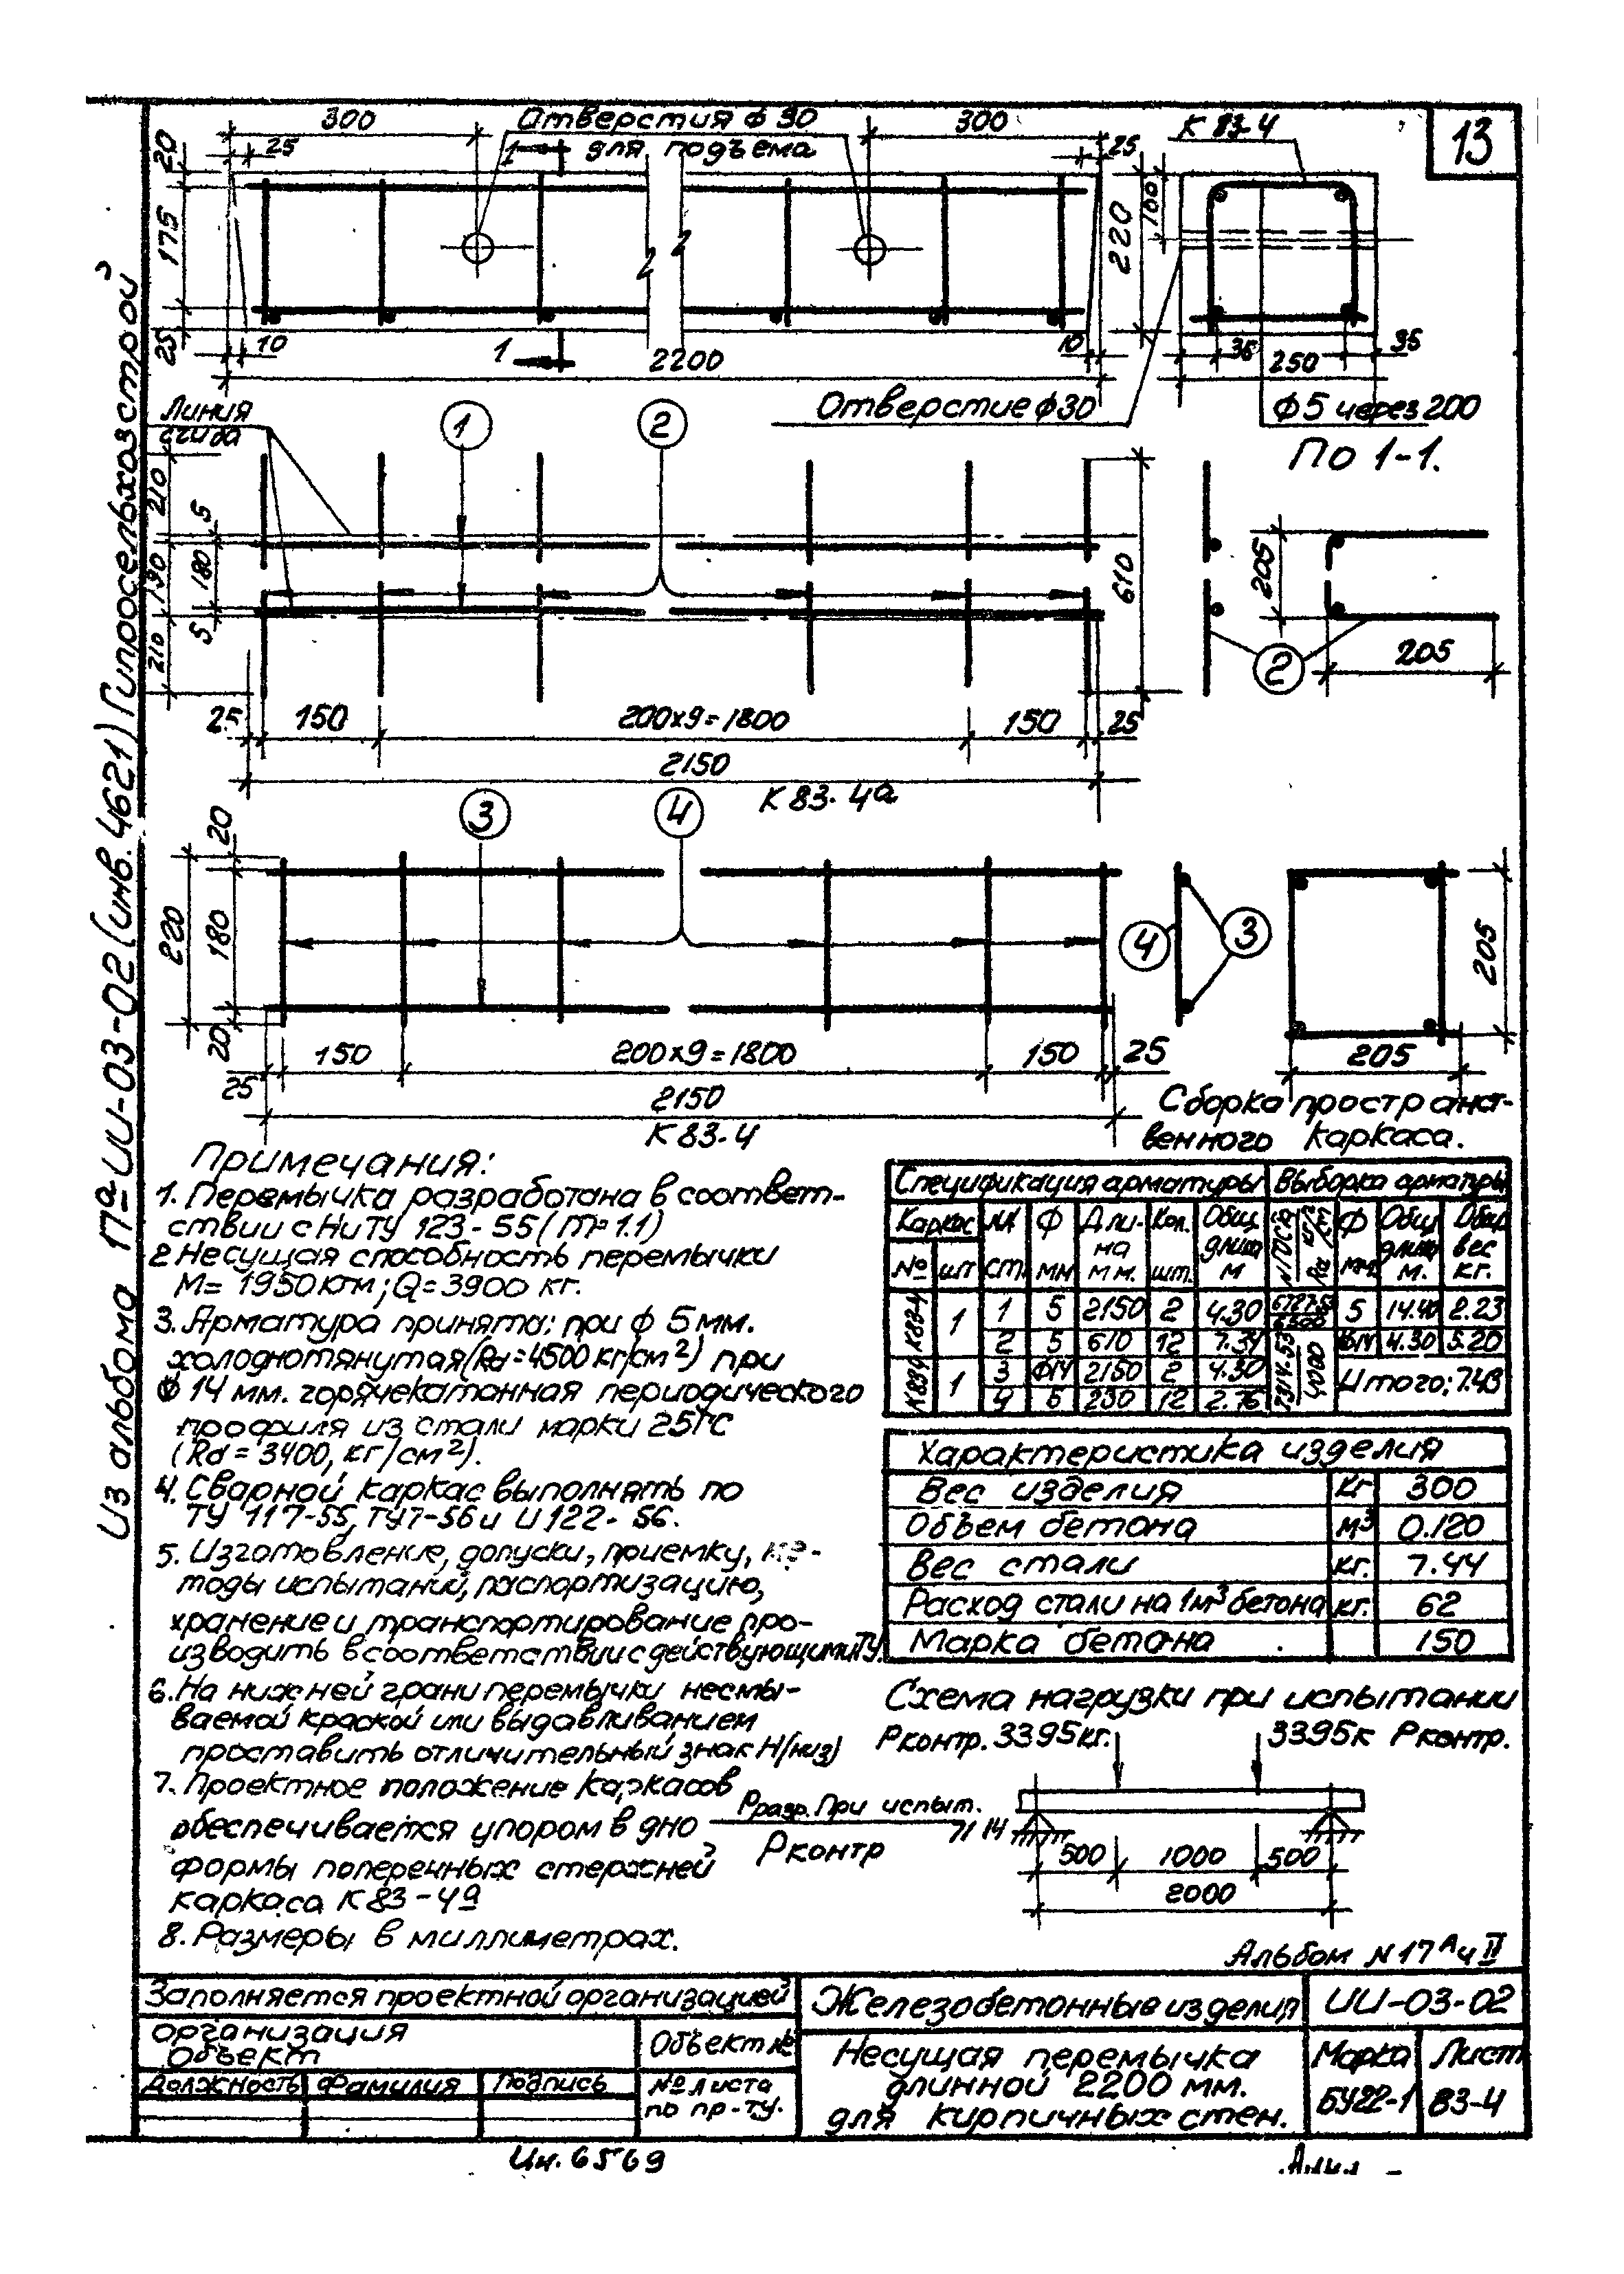 13
300
Отверстия ф 30
для подъема
300
К 83-4
20
25
1
25
175
220
100
25
10
1
2200
10
35
250
35
Отверстие ф30
ф5 через 200
По 1-1.
Линия
сгиба
1
2
210
190
210
5
180
5
610
205
205
2
25
150
200x9=1800
150
25
2150
К 83-4а
3
4
20
220
180
20
4
3
205
205
25
150
200x9=1800
150
25
2150
К 83-4
Сборка пространст-
венного каркаса.
Из альбома 17а-ИИ-03-02 (инв. 4621) Гипросельхозстрой
Примечания:
1. Перемычка разработана в соответ-
ствии с НиТУ 123-55 (
2 Несущая способность перемычки
М= 1950 кгм; Q= 3900 кг.
3. Арматура принята: при ф 5 мм.
холоднотянутая (Rа =4500 кг/см²) при
ф 14 мм. горячекатанная периодического
профиля из стали марки 25ГС
(Rа = 3400, кг/см²).
4. Сварной каркас выполнять по
ТУ 117-55, ТУ7-56 и И 122-56.
5. Изготовление, допуски, приемку,
тоды испытаний, паспортизацию,
хранение и транспортирование про-
изводить в соответствии с действующими ТУ.
6. На нижней грани перемычки несмы-
ваемой краской или выдавливанием
проставить отличительный знак Н/низ)
7. Проектное положение каркасов
обеспечивается упором в дно
формы поперечных стержней
каркаса К 83-4а
8. Размеры в миллиметрах.
Рразр. При испыт.
Рконтр
14
Спецификация арматуры
Выборка арматуры
Каркас
№
шт
ст.
Ф
мм
Дли-
на
мм.
Кол.
шт.
Общ
длина
м
Ф
мм
Общ
длин
м.
Общ
вес
кг.
К83-4
1
1 5 2150 2 4.30
2 5 610 12 7.34
1
3 ф14 2150 2 4.30
4 5 230 12 2.76
5 14.40 2.23
ф14 4.30 5.20
Итого: 7.43
Характеристика изделия
Вес изделия кг 300
Объем бетона м³ 0.120
Вес стали кг. 7.44
Расход стали на 1м³ бетона кг. 62
Марка бетона 150
Схема нагрузки при испытании
Рконтр. 3395кг.
3395к Рконтр.
500
1000
500
2000
Альбом N 17 А ч II
Заполняется проектной организацией
организация
Объект
Объект №
Должность
Фамилия
Подпись
№ листа
по пр-ту.
Железобетонные изделия
ИИ-03-02
Несущая перемычка
длинной 2200 мм.
для кирпичных стен.
Марка
БУ22-1
Лист
83-4
Ин. 6569